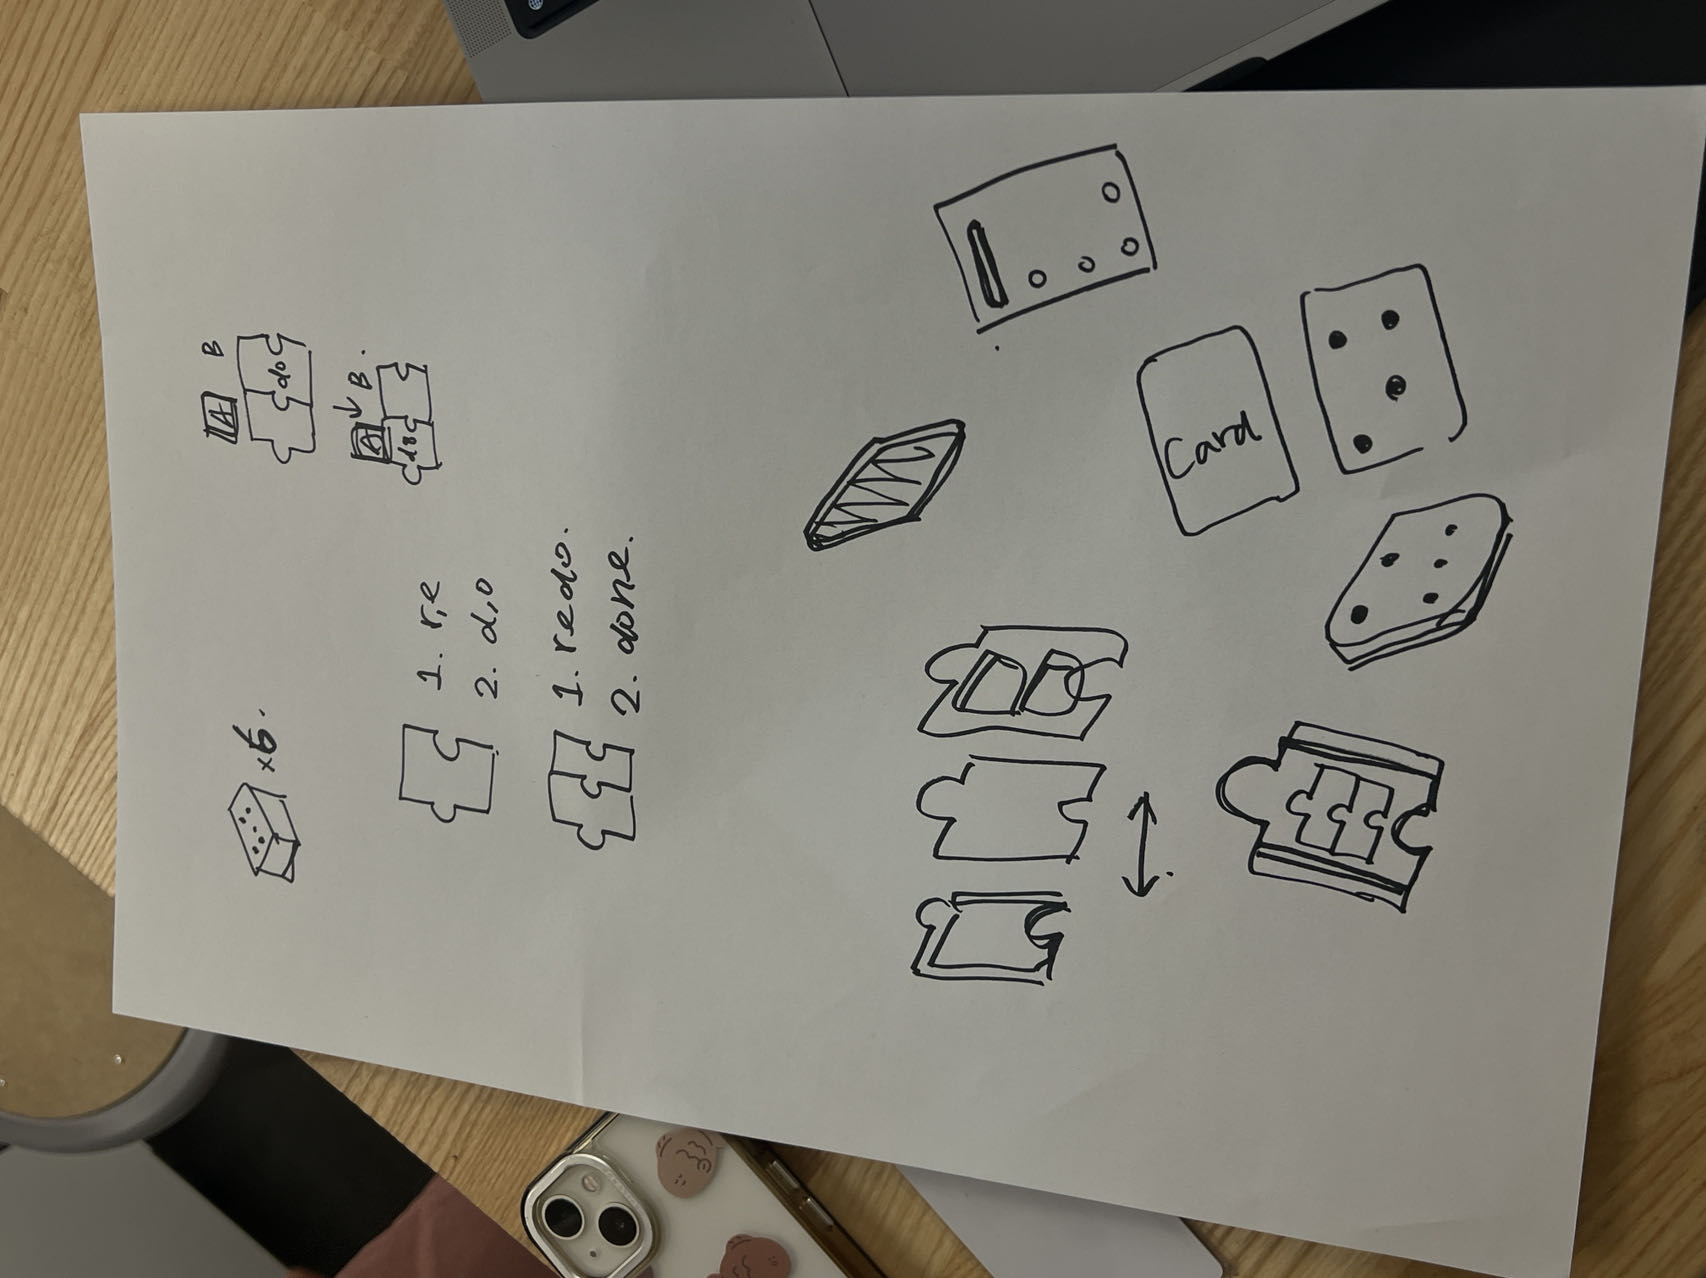 ×6.
A B
do
A B.
do
1. r,e
2. d,o
1. redo.
2. done.
Card